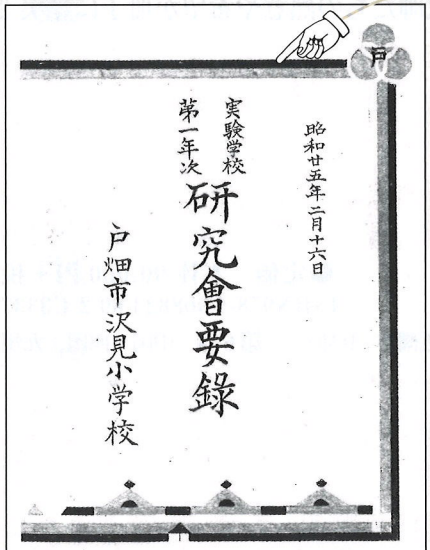 戸
昭和廿五年二月十六日
実験学校
第一年次
研究會要錄
戸畑市沢見小学校